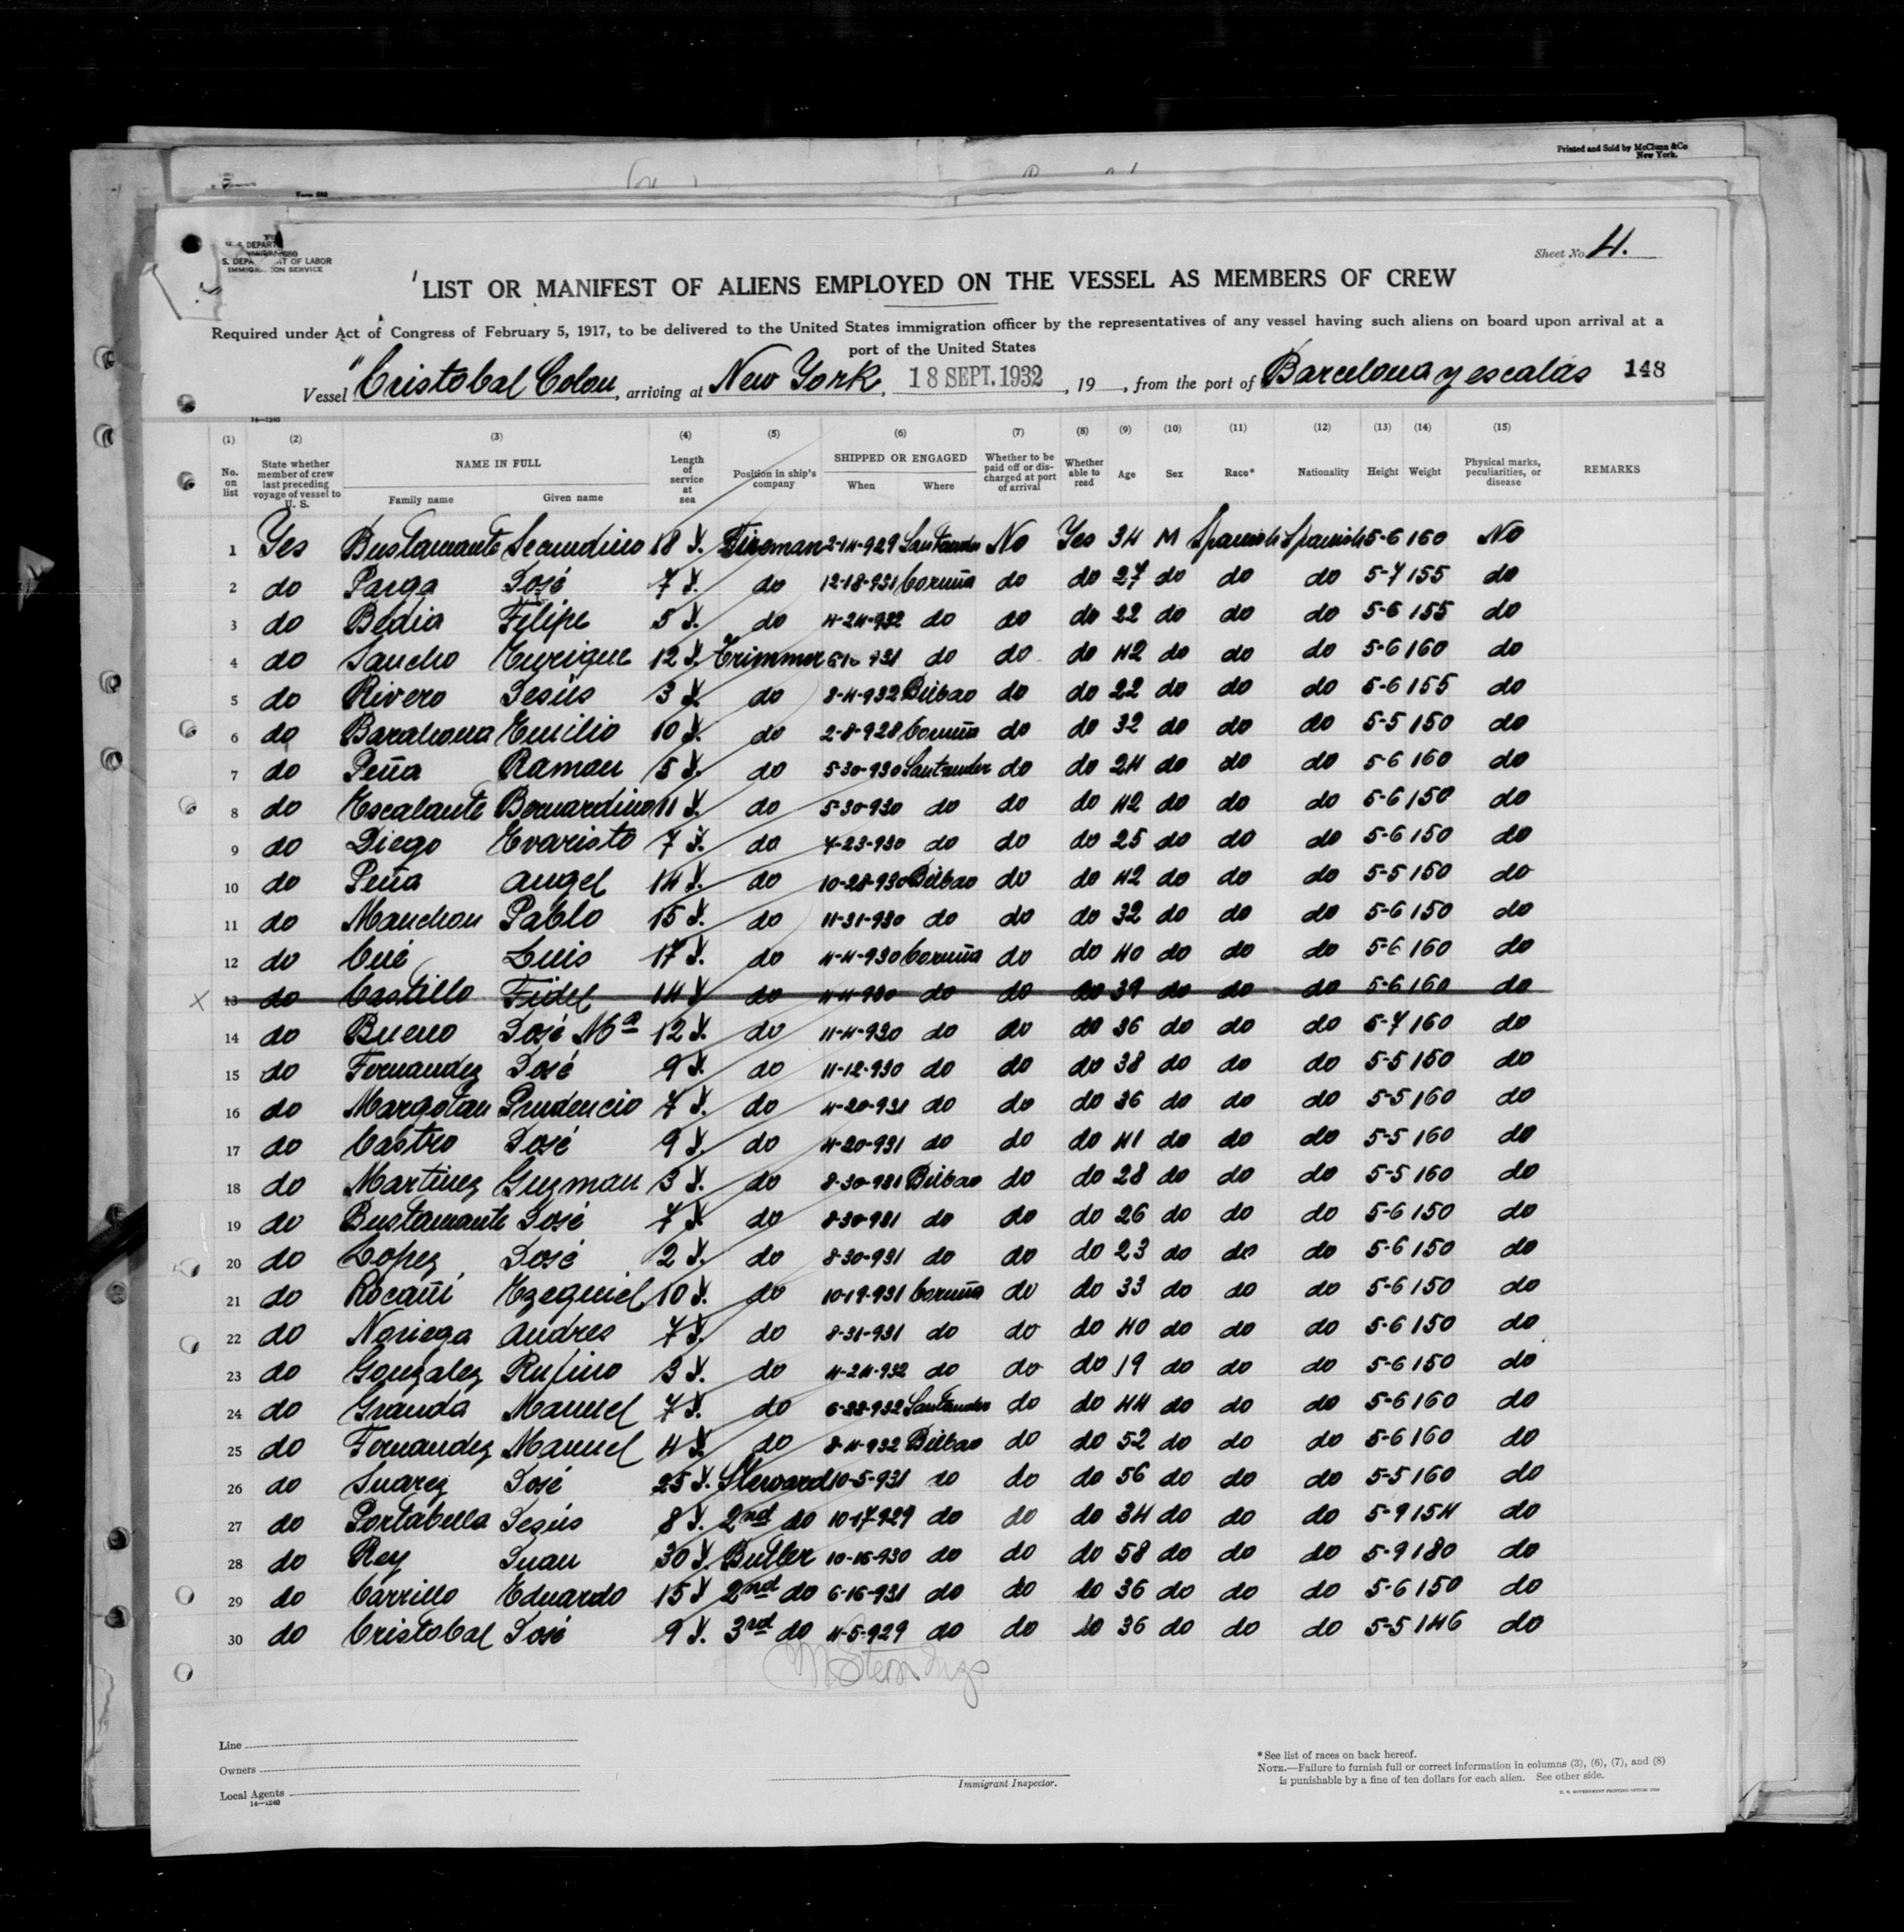 Printed and Sold by McClunn & Co
New York.
Form 680
S. DEPARTMENT OF LABOR
IMMIGRATION SERVICE
Sheet No. 4.
LIST OR MANIFEST OF ALIENS EMPLOYED ON THE VESSEL AS MEMBERS OF CREW
Required under Act of Congress of February 5, 1917, to be delivered to the United States immigration officer by the representatives of any vessel having such aliens on board upon arrival at a
port of the United States
Vessel "Cristobal Colon, arriving at New York, 18 SEPT. 1932, 19 , from the port of Barcelona y escalas 148
14—1240
(1) (2) (3) (4) (5) (6) (7) (8) (9) (10) (11) (12) (13) (14) (15)
No. on list State whether member of crew last preceding voyage of vessel to U. S. NAME IN FULL Family name Given name Length of service at sea Position in ship's company SHIPPED OR ENGAGED When Where Whether to be paid off or discharged at port of arrival Whether able to read Age Sex Race* Nationality Height Weight Physical marks, peculiarities, or disease REMARKS
1 Yes Bustamante Secundino 18 Y. Fireman 2-14-929 Santander No Yes 34 M Spanish Spanish 5-6 160 No
2 do Parga José 7 Y. do 12-18-931 Coruña do do 27 do do do 5-7 155 do
3 do Bedia Filipe 5 Y. do 4-24-932 do do do 22 do do do 5-6 155 do
4 do Sancho Enrique 12 Y. Trimmer 931 do do do 42 do do do 5-6 160 do
5 do Rivero Jesús 3 Y. do 8-4-932 Bilbao do do 22 do do do 5-6 155 do
6 do Barahona Emilio 10 Y. do 2-8-928 Coruña do do 32 do do do 5-5 150 do
7 do Peña Ramon 5 Y. do 5-30-930 Santander do do 24 do do do 5-6 160 do
8 do Escalante Bernardino 11 Y. do 5-30-930 do do do 42 do do do 5-6 150 do
9 do Diego Evaristo 7 Y. do 4-23-930 do do do 25 do do do 5-6 150 do
10 do Peña Angel 14 Y. do 10-28-930 Bilbao do do 42 do do do 5-5 150 do
11 do Manchon Pablo 15 Y. do 11-31-930 do do do 32 do do do 5-6 150 do
12 do Cué Luis 17 Y. do 4-4-930 Coruña do do 40 do do do 5-6 160 do
X 13 do Castillo Fidel 14 Y do 4-4-930 do do do 39 do do do 5-6 160 do
14 do Bueno José Mª 12 Y. do 11-4-930 do do do 36 do do do 5-7 160 do
15 do Fernandez José 9 Y. do 11-12-930 do do do 38 do do do 5-5 150 do
16 do Margotan Prudencio 7 Y. do 4-20-931 do do do 36 do do do 5-5 160 do
17 do Castro José 9 Y. do 4-20-931 do do do 41 do do do 5-5 160 do
18 do Martinez Guzman 3 Y. do 8-30-931 Bilbao do do 28 do do do 5-5 160 do
19 do Bustamante José 7 Y. do 8-30-931 do do do 26 do do do 5-6 150 do
20 do Lopez José 2 Y. do 8-30-931 do do do 23 do do do 5-6 150 do
21 do Rocañi Ezequiel 10 Y. do 10-19-931 Coruña do do 33 do do do 5-6 150 do
22 do Noriega Andres 7 Y. do 8-31-931 do do do 40 do do do 5-6 150 do
23 do Gonzalez Rufino 3 Y. do 4-24-932 do do do 19 do do do 5-6 150 do
24 do Granda Manuel 7 Y. do 6-28-932 Santander do do 44 do do do 5-6 160 do
25 do Fernandez Manuel 4 Y. do 8-4-932 Bilbao do do 52 do do do 5-6 160 do
26 do Suarez José 25 Y. Steward 10-5-931 do do do 56 do do do 5-5 160 do
27 do Portabella Jesús 8 Y. 2nd do 10-17-929 do do do 34 do do do 5-9 154 do
28 do Rey Juan 30 Y. Butler 10-16-930 do do do 58 do do do 5-9 180 do
29 do Carrillo Eduardo 15 Y 2nd do 6-16-931 do do do 36 do do do 5-6 150 do
30 do Cristobal José 9 Y. 3rd do 4-5-929 do do do 36 do do do 5-5 146 do
Line
Owners
Local Agents
14—1240
Immigrant Inspector.
*See list of races on back hereof.
NOTE.—Failure to furnish full or correct information in columns (3), (6), (7), and (8)
is punishable by a fine of ten dollars for each alien. See other side.